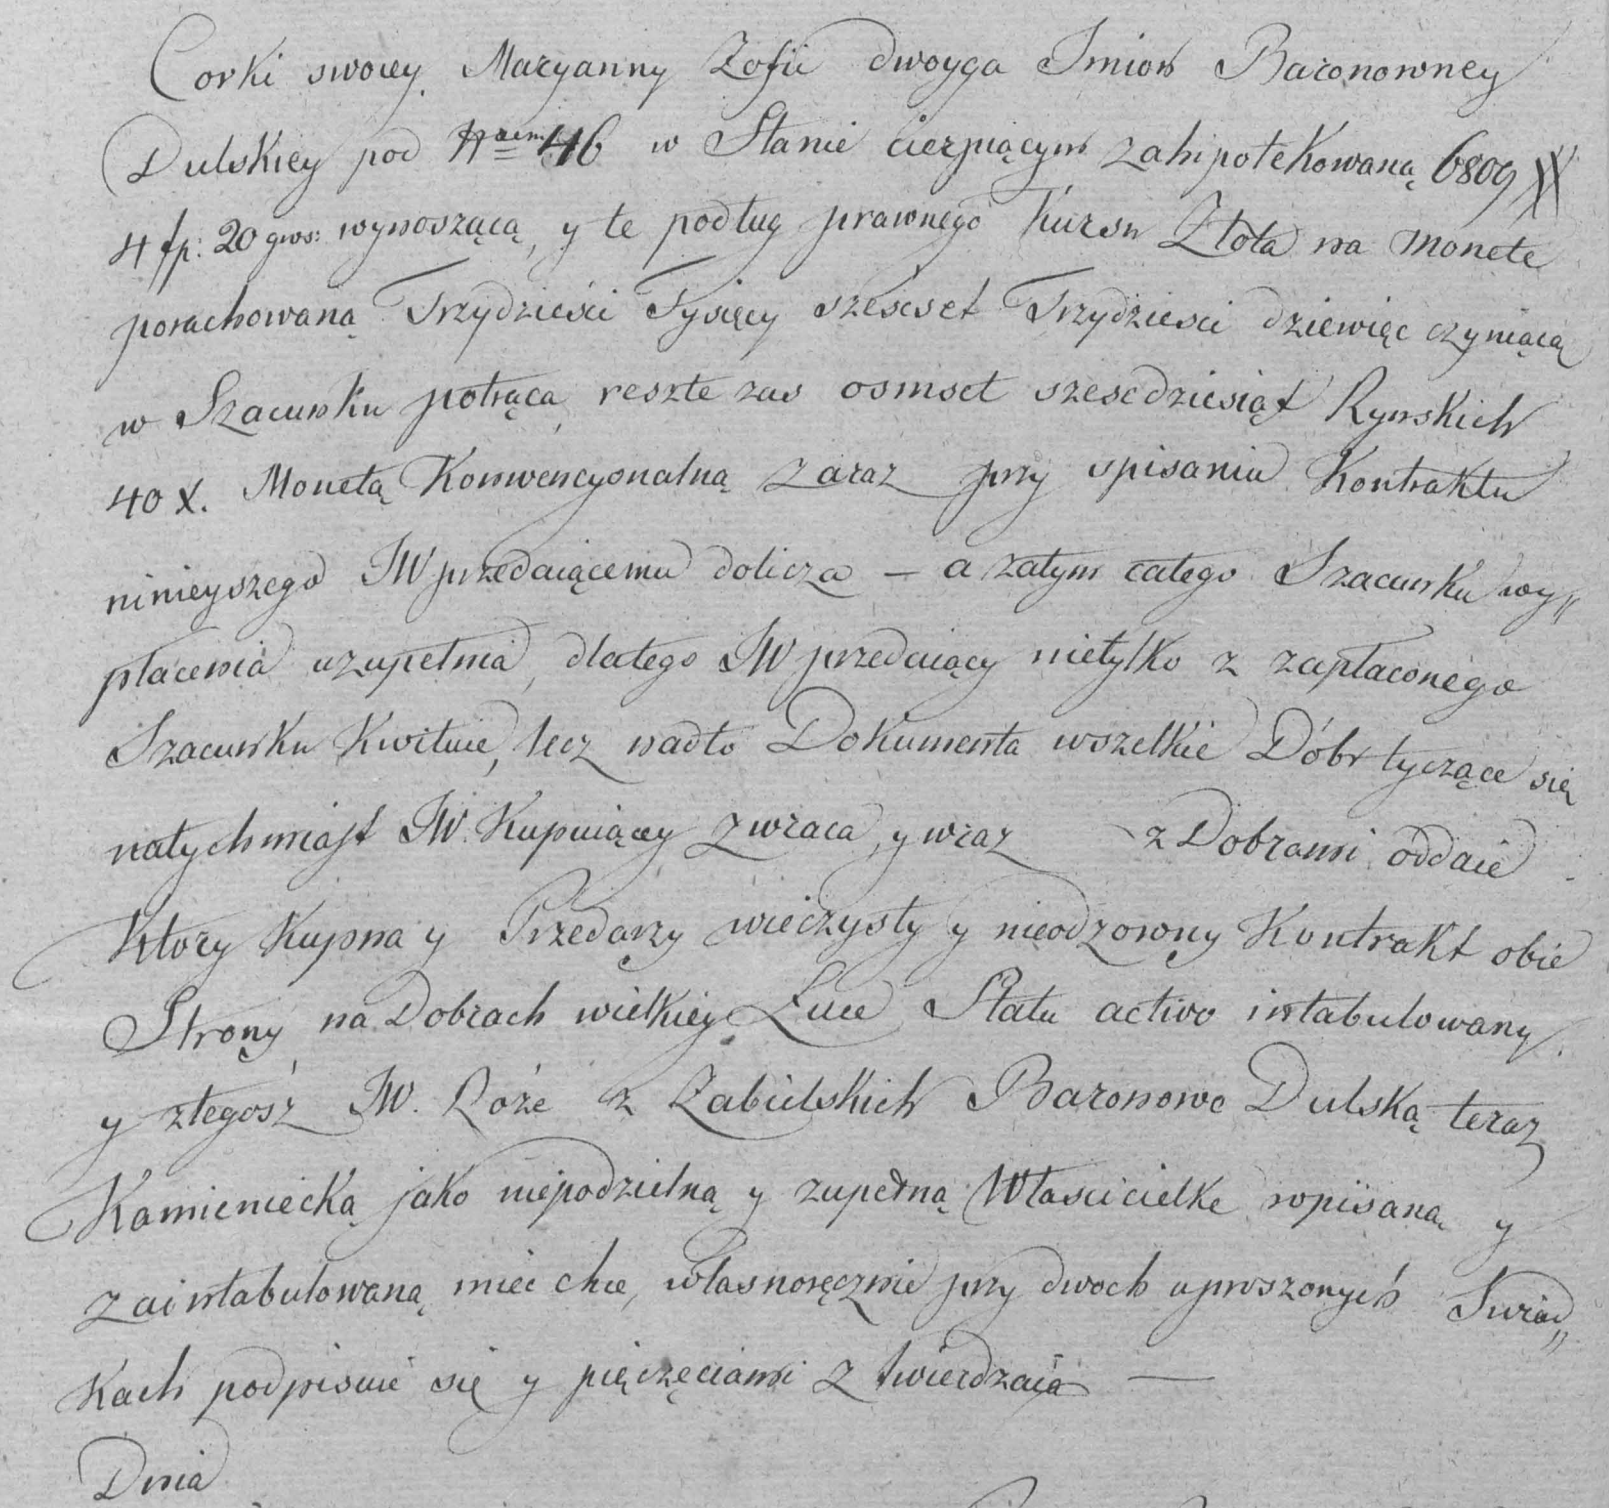 Corki swoiey Maryanny Zofii dwoyga Imion Baronowney
Dulskiey pod Nrem 46 w Stanie cierpiącym zahipotekowaną 6809 XX
4 fp: 20 gros: wynoszącą, y te podług prawnego kursu Złota na monete
porachowaną Trzydzieści Tysięcy szescset Trzydziesci dziewięc czyniącą
w Szacunku potrąca, reszte zas osmset szescdziesiąt Rynskich
40 X. Monetą Konwencyonalną zaraz przy spisaniu Kontraktu
ninieyszego JW przedaiącemu dolicza — a zatym całego Szacunku wy„
płacenia uzupełnia, dlatego JW przedaiący nietylko z zapłaconego
Szacunku Kwituie, lecz nadto Dokumenta wszelkie Dóbr tyczące się
natychmiast JW. Kupuiącey zwraca, y wraz z Dobrami oddaie
Ktory Kupna y Przedarzy wieczysty y nieodzowny Kontrakt obie
Strony na Dobrach wielkiey Łuce Statu activo intabulowany
y ztegosż JW. Róże z Zabielskich Baronowe Dulską teraz
Kamieniecką jako niepodzielną y zupełną Własccicielke wpisaną y
zaintabulowaną miec chce, własnoręcznie przy dwoch uproszonych Swiad„
Kach podpisuie się y pięczęciami ztwierdzaią —
Dnia